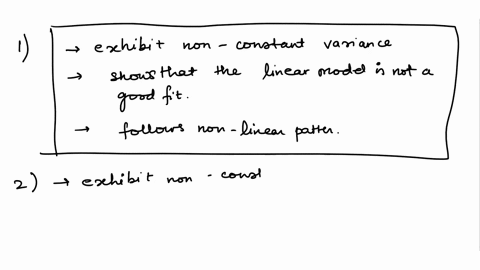 1) → exhibit non-constant variance
→ shows that the linear model is not a
good fit.
→ follows non-linear patter.
2) → exhibit non-const